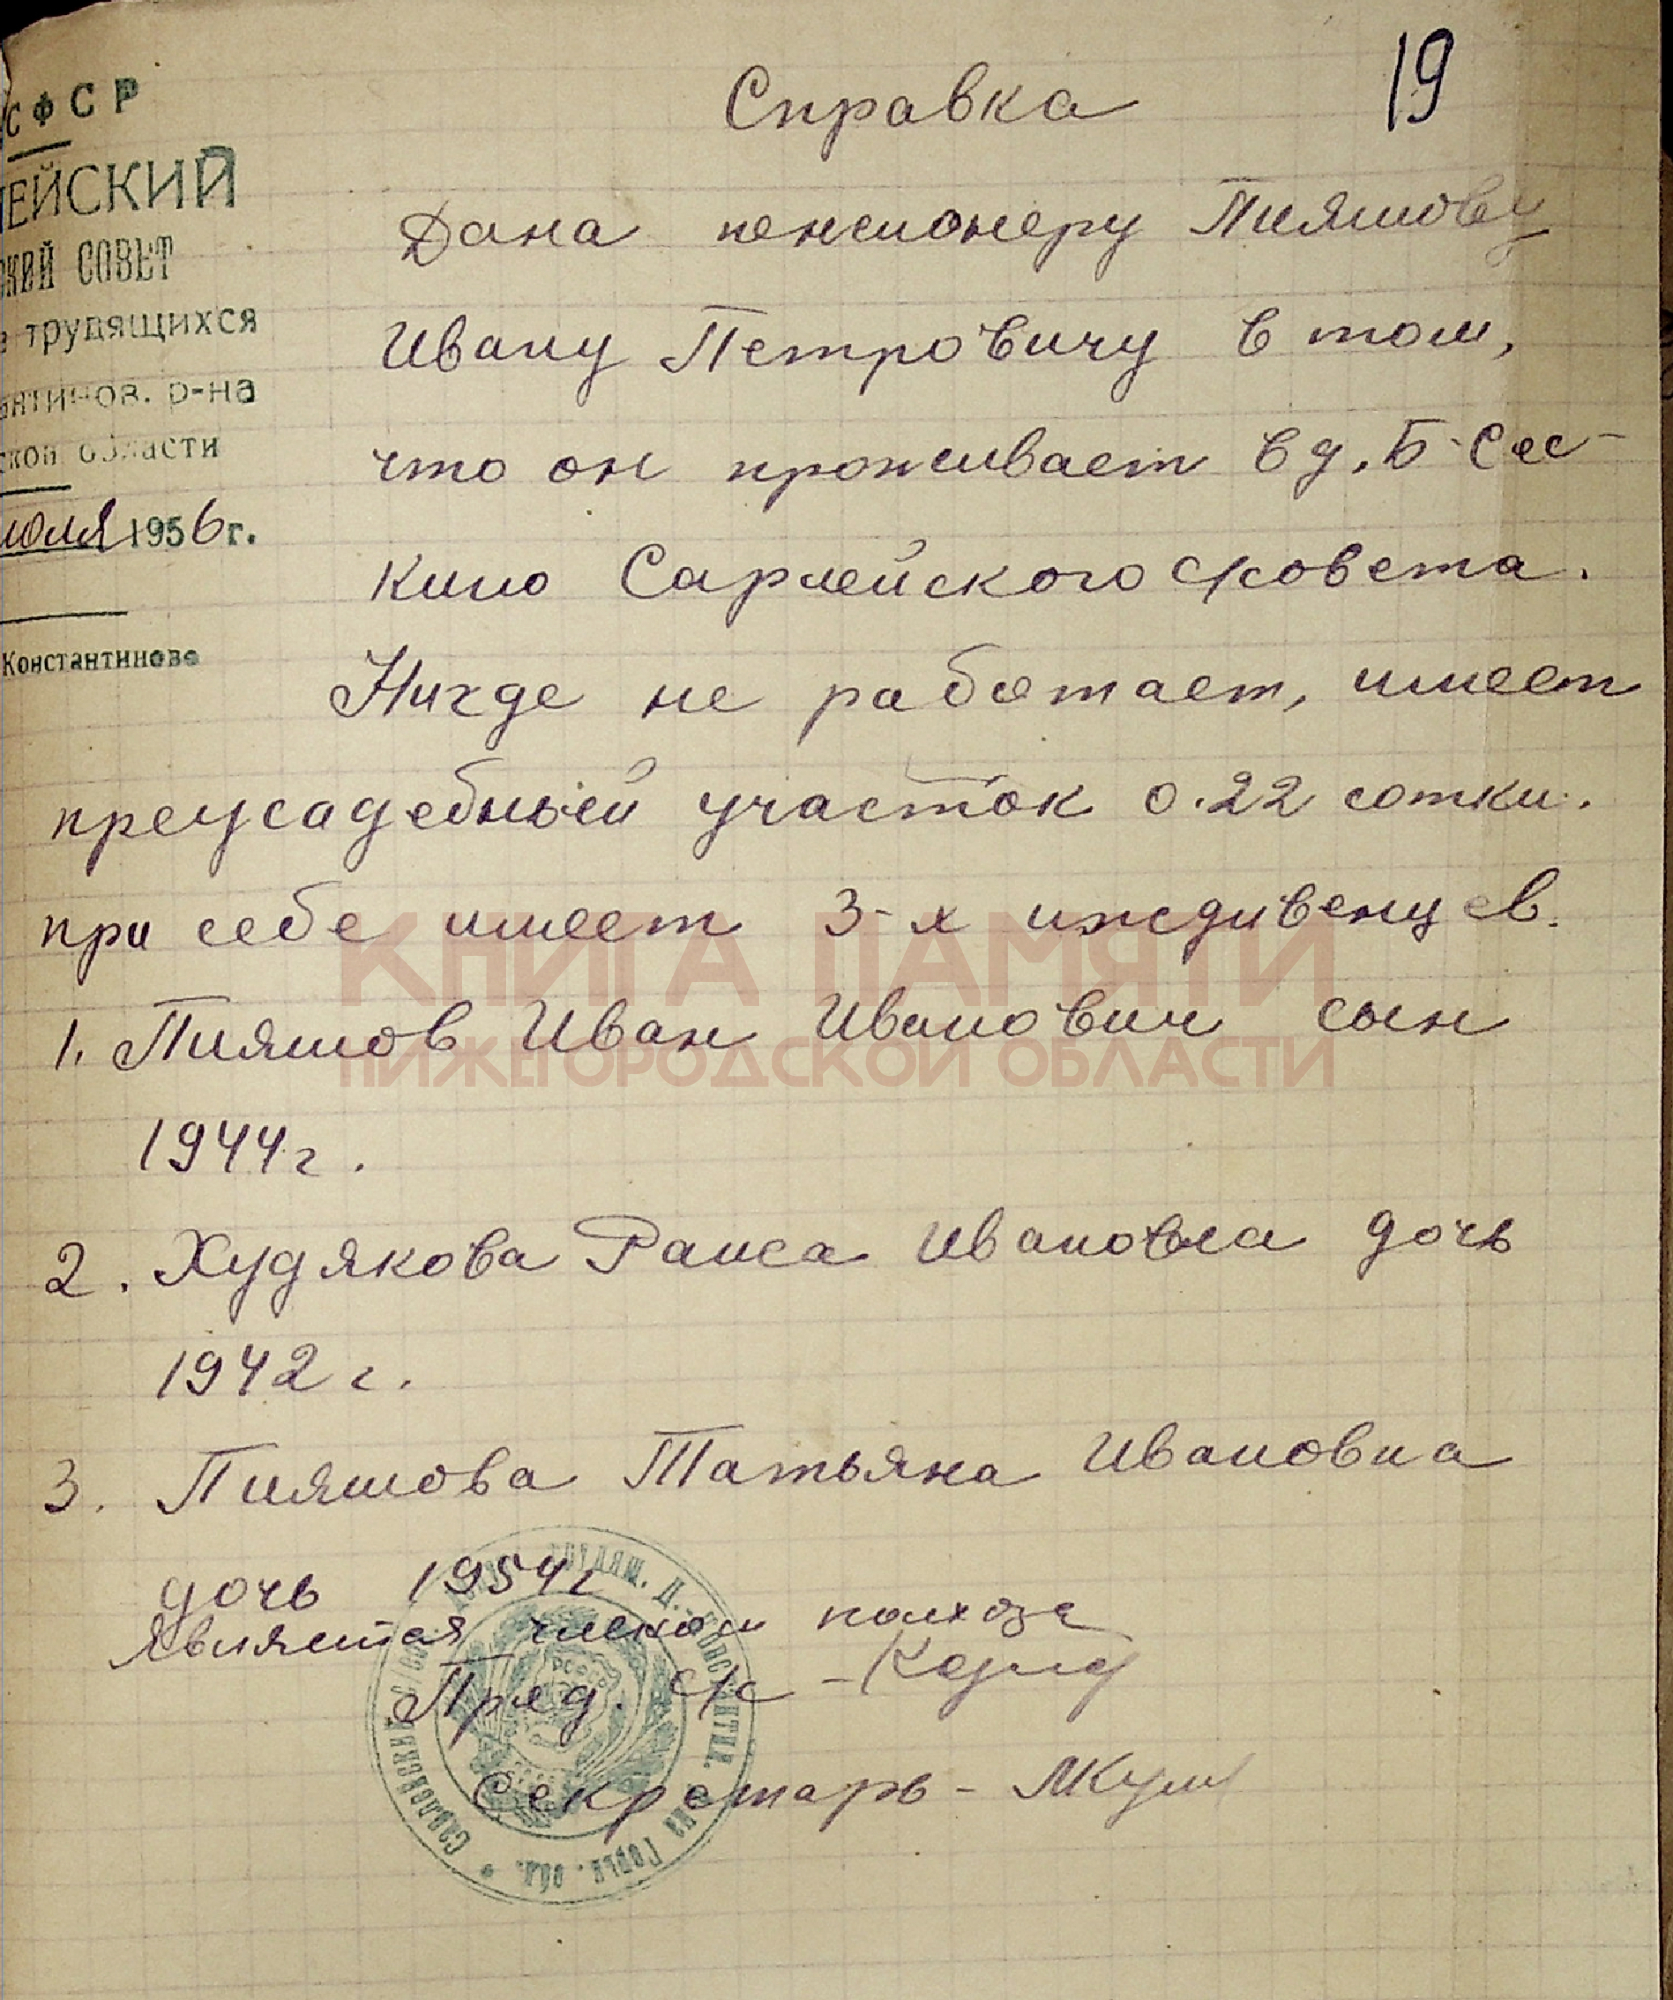 19
СФСР
ЛЕЙСКИЙ
СКИЙ СОВЕТ
трудящихся
антинов. р-на
ской области
июля 1956 г.
Константиново
Справка
Дана пенсионеру Пияшову
Ивану Петровичу в том,
что он проживает в д. Б-Сес-
кино Сарлейского с/совета.
Нигде не работает, имеет
преусадебный участок 0.22 сотки.
при себе имеет 3-х иждивенцев.
1. Пияшов Иван Иванович сын
1944 г.
2. Худякова Раиса Ивановна дочь
1942 г.
3. Пияшова Татьяна Ивановна
дочь 1954 г
Является членом колхоза
Пред. с/с -
Секретарь -
КНИГА ПАМЯТИ
НИЖЕГОРОДСКОЙ ОБЛАСТИ
трудящ. Д.-Константин. на Горьк. обл. *
РСФСР